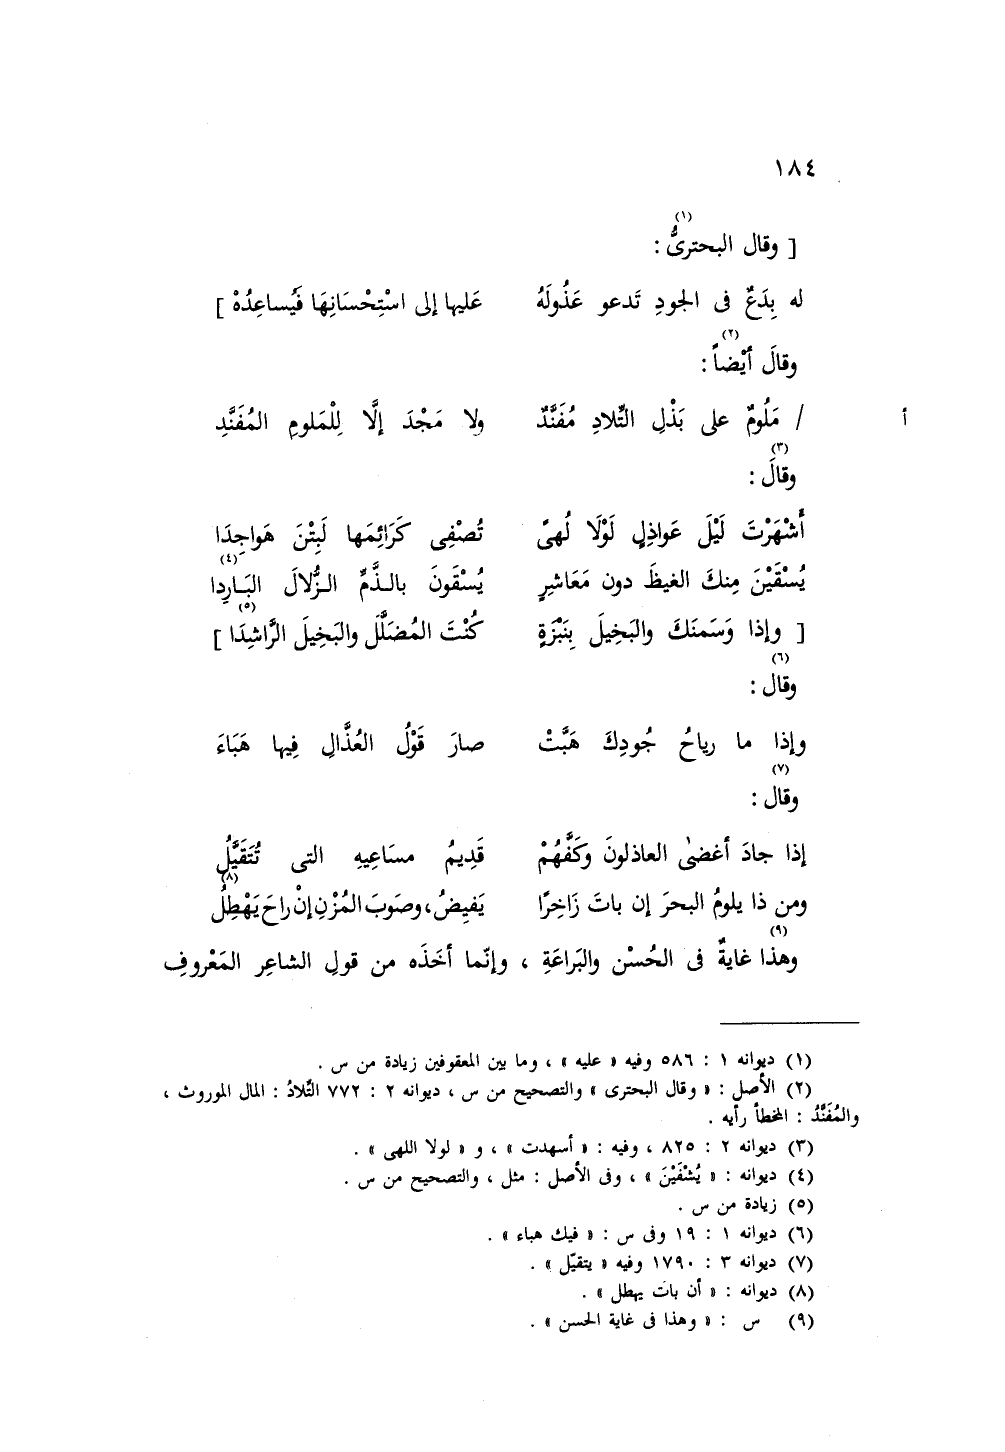 ١٨٤
(١)
[ وقال البحترىُّ :
له بِدَعٌ فى الجودِ تَدعو عَذُولَهُ عَليها إلى اسْتِحْسَانِهَا فَيُساعِدُهْ ]
(٢)
وقالَ أيْضاً :
أ / مَلُومٌ على بَذْلِ التِّلادِ مُفَنَّدٌ ولا مَجْدَ إلَّا لِلْمَلومِ المُفَنَّدِ
(٣)
وقالَ :
أَسْهَرْتَ لَيْلَ عَواذِلٍ لَوْلَا لُهىً تُصْفِى كَرَائِمَها لَبِتْنَ هَواجِدَا
(٤)
يُسْقَيْنَ مِنكَ الغيظَ دون مَعَاشِرٍ يُسْقَونَ بالذَّمِّ الزُّلالَ البَارِدا
(٥)
[ وإذا وَسَمنَكَ والبَخِيلَ بِنَبْزَةٍ كُنْتَ المُضَلَّلَ والبَخِيلَ الرَّاشِدَا ]
(٦)
وقال :
وإذا ما رياحُ جُودِكَ هَبَّتْ صارَ قَوْلُ العُذَّالِ فِيها هَبَاءَ
(٧)
وقال :
إذا جادَ أغضىٰ العاذلونَ وكَفَّهُمْ قَدِيمُ مسَاعِيهِ التى تُتَقَيَّلُ
(٨)
ومن ذا يلومُ البحرَ إن باتَ زَاخِرًا يَفيِضُ، وصَوبَ المُزْنِ إنْ راحَ يَهْطِلُ
(٩)
وهذا غايةٌ فى الحُسْن والبَراعَةِ ، وإنّما أخَذَه من قولِ الشاعِر المَعْروفِ
(١) ديوانه ١ : ٥٨٦ وفيه « عليه » ، وما بين المعقوفين زيادة من س .
(٢) الأصل : « وقال البحترى » والتصحيح من س ، ديوانه ٢ : ٧٧٢ التِّلادُ : المال الموروث ،
والمُفَنَّدُ : المخطأ رأيه .
(٣) ديوانه ٢ : ٨٢٥ ، وفيه : « أسهدت » ، و « لولا اللهى » .
(٤) ديوانه : « يُشْفَيْنَ » ، وفى الأصل : مثل ، والتصحيح من س .
(٥) زيادة من س .
(٦) ديوانه ١ : ١٩ وفى س : « فيك هباء » .
(٧) ديوانه ٣ : ١٧٩٠ وفيه « يتقيّل » .
(٨) ديوانه : « أن بات يهطل » .
(٩) س : « وهذا فى غاية الحسن » .